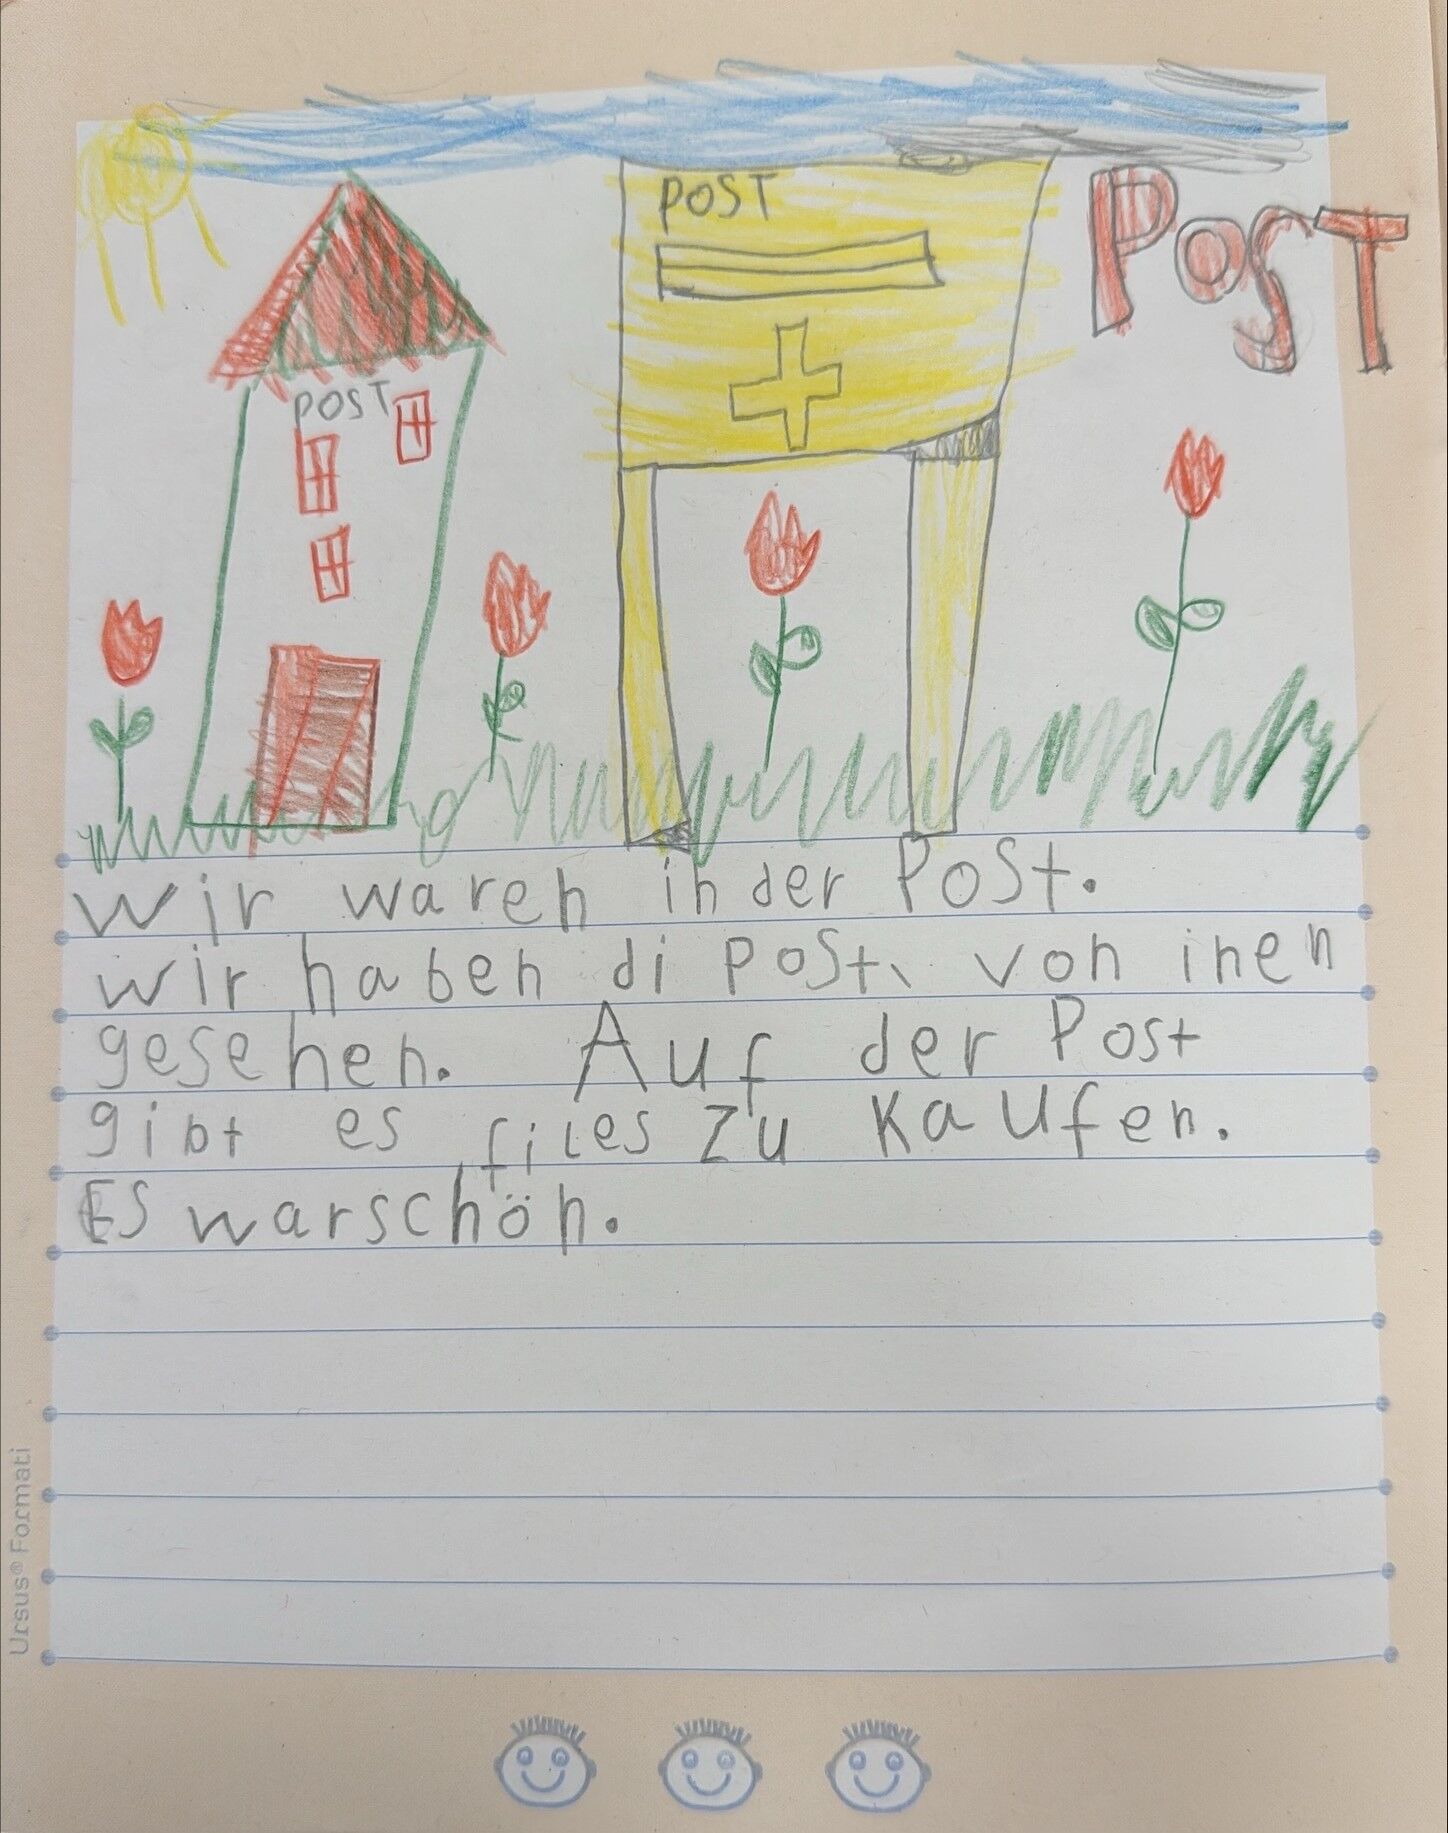 POST
POST
POST
wir waren in der Post.
wir haben di post von inen
gesehen. Auf der Post
gibt es files zu kaufen.
Es warschön.
Ursus® Formati